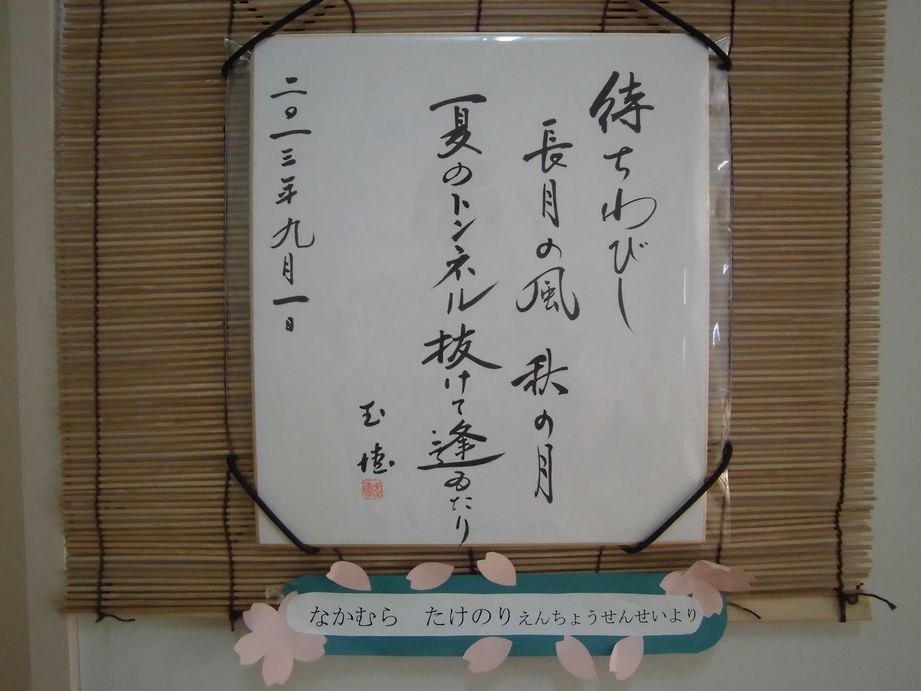 待ちわびし
長月の風 秋の月
夏のトンネル抜けて逢ゐたり
二〇一三年九月一日
なかむら たけのりえんちょうせんせいより